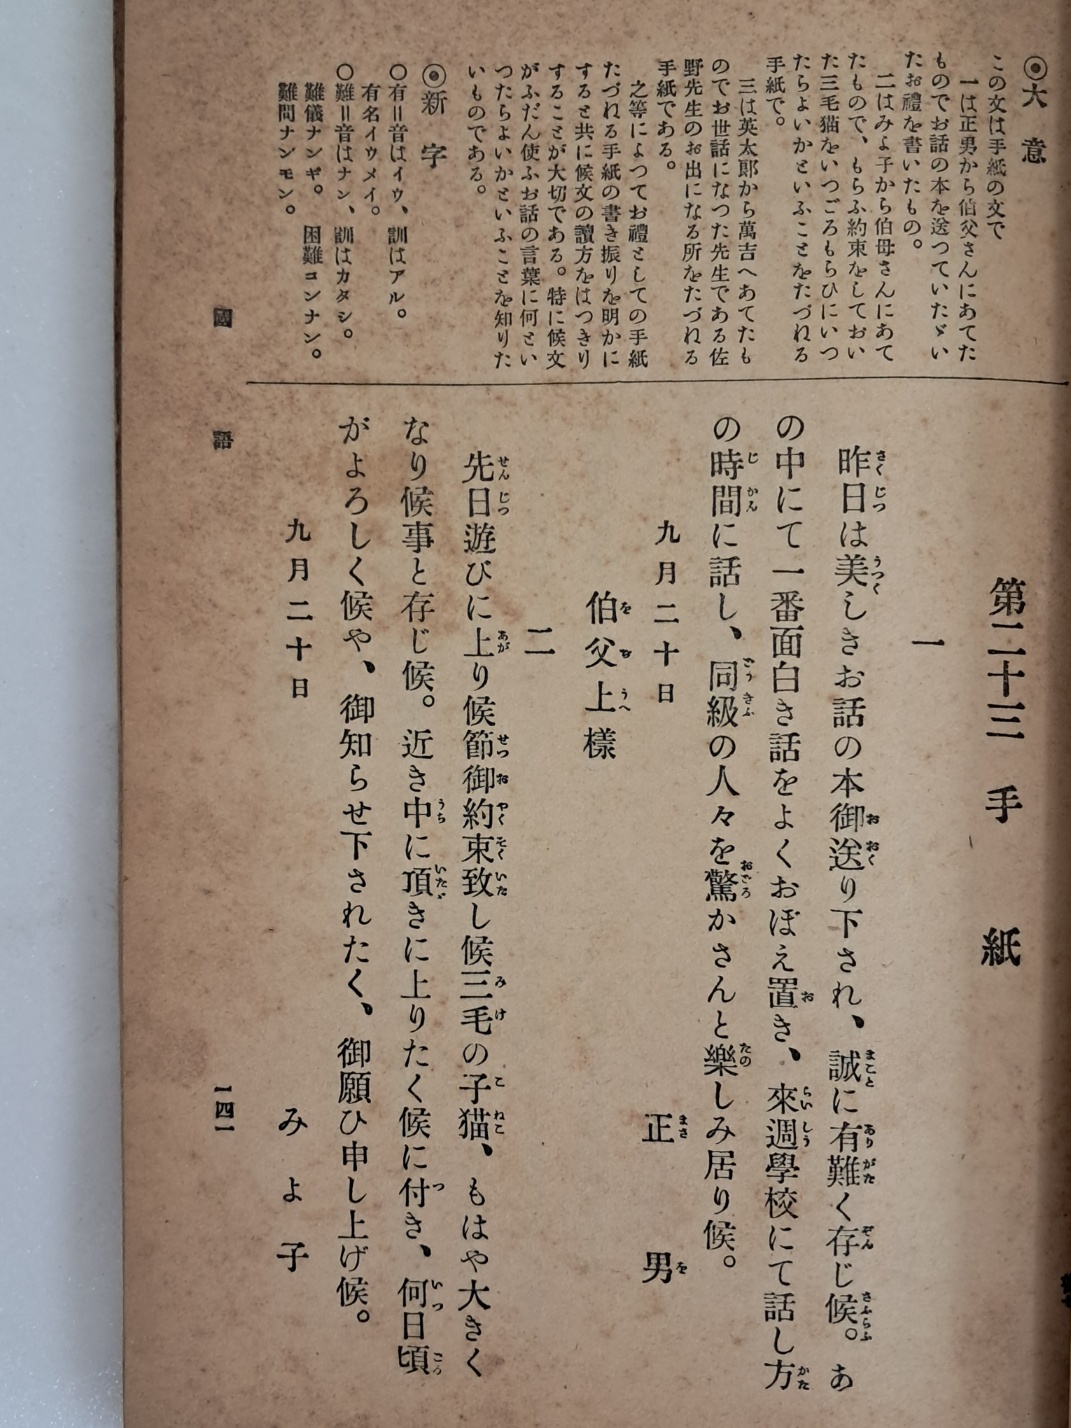 ◎大意
この文は手紙の文で
一は正男から伯父さんにあてた
ものでお話の本を送つていたゞい
たお禮を書いたもの。
二はみよ子から伯母さんにあて
たもので、もらふ約束をしておい
た三毛猫をいつごろもらひにいつ
たらよいかといふことをたづれる
手紙で。
三は英太郞から萬吉へあてたも
のでお世話になつた先生である佐
野先生のお出になる所をたづれる
手紙である。
之等によつてお禮としての手紙
たづれる手紙の書き振りを明かに
すると共に候文の讀方をはつきり
することが大切である。特に候文
がふだん使ふお話の言葉に何とい
つたらよいかといふことを知りた
いものである。
◎新字
○有＝音はイウ、訓はアル。
有名イウメイ。
○難＝音はナン、訓はカタシ。
難儀ナンギ。 困難コンナン。
難問ナンモン。
第二十三 手紙
一
昨日は美しきお話の本御送り下され、誠に有難く存じ候。あ
さくじつ うつく お おく まこと ありがた ぞん さふらふ
の中にて一番面白き話をよくおぼえ置き、來週學校にて話し方
お らいしう かた
の時間に話し、同級の人々を驚かさんと樂しみ居り候。
じかん どうきふ おどろ たの
九月二十日 正男
まさを
伯父上樣
をぢうへ
二
先日遊びに上り候節御約束致し候三毛の子猫、もはや大きく
せんじつ あが せつ お やくそくいた みけ こねこ
なり候事と存じ候。近き中に頂きに上りたく候に付き、何日頃
うち いたゞ つ いつ ごろ
がよろしく候や、御知らせ下されたく、御願ひ申し上げ候。
九月二十日 みよ子
國語
一四一